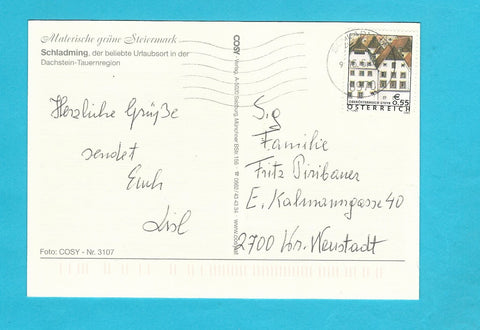 Malerische grüne Steiermark
Schladming, der beliebte Urlaubsort in der
Dachstein-Tauernregion
Herzliche Grüße
sendet
Euch
Lisl
Foto: COSY - Nr. 3107
COSY Verlag, A-5020 Salzburg, Münchner BStr. 150
www.cosy.at
€
0,55
ÖSTERREICH
Sg
Familie
Fritz Piribauer
E. Kalmanngasse 40
2700 Wr. Neustadt